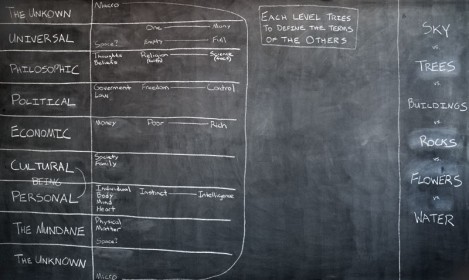 THE UNKOWN
Macro
UNIVERSAL
One Many
Empty Full
Space?
PHILOSOPHIC
Thoughts Religion Science
Beliefs (Faith) (Fact)
POLITICAL
Goverment Freedom Control
Law
ECONOMIC
Money Poor Rich
CULTURAL
Society
Family
BEING
PERSONAL
Individual Instinct Intelligence
Body
Mind
Heart
THE MUNDANE
Physical
Matter
Space?
THE UNKNOWN
Micro
EACH LEVEL TRIES
TO DEFINE THE TERMS
OF THE OTHERS.
SKY
vs
TREES
vs
BUILDINGS
vs
ROCKS
vs
FLOWERS
vs
WATER